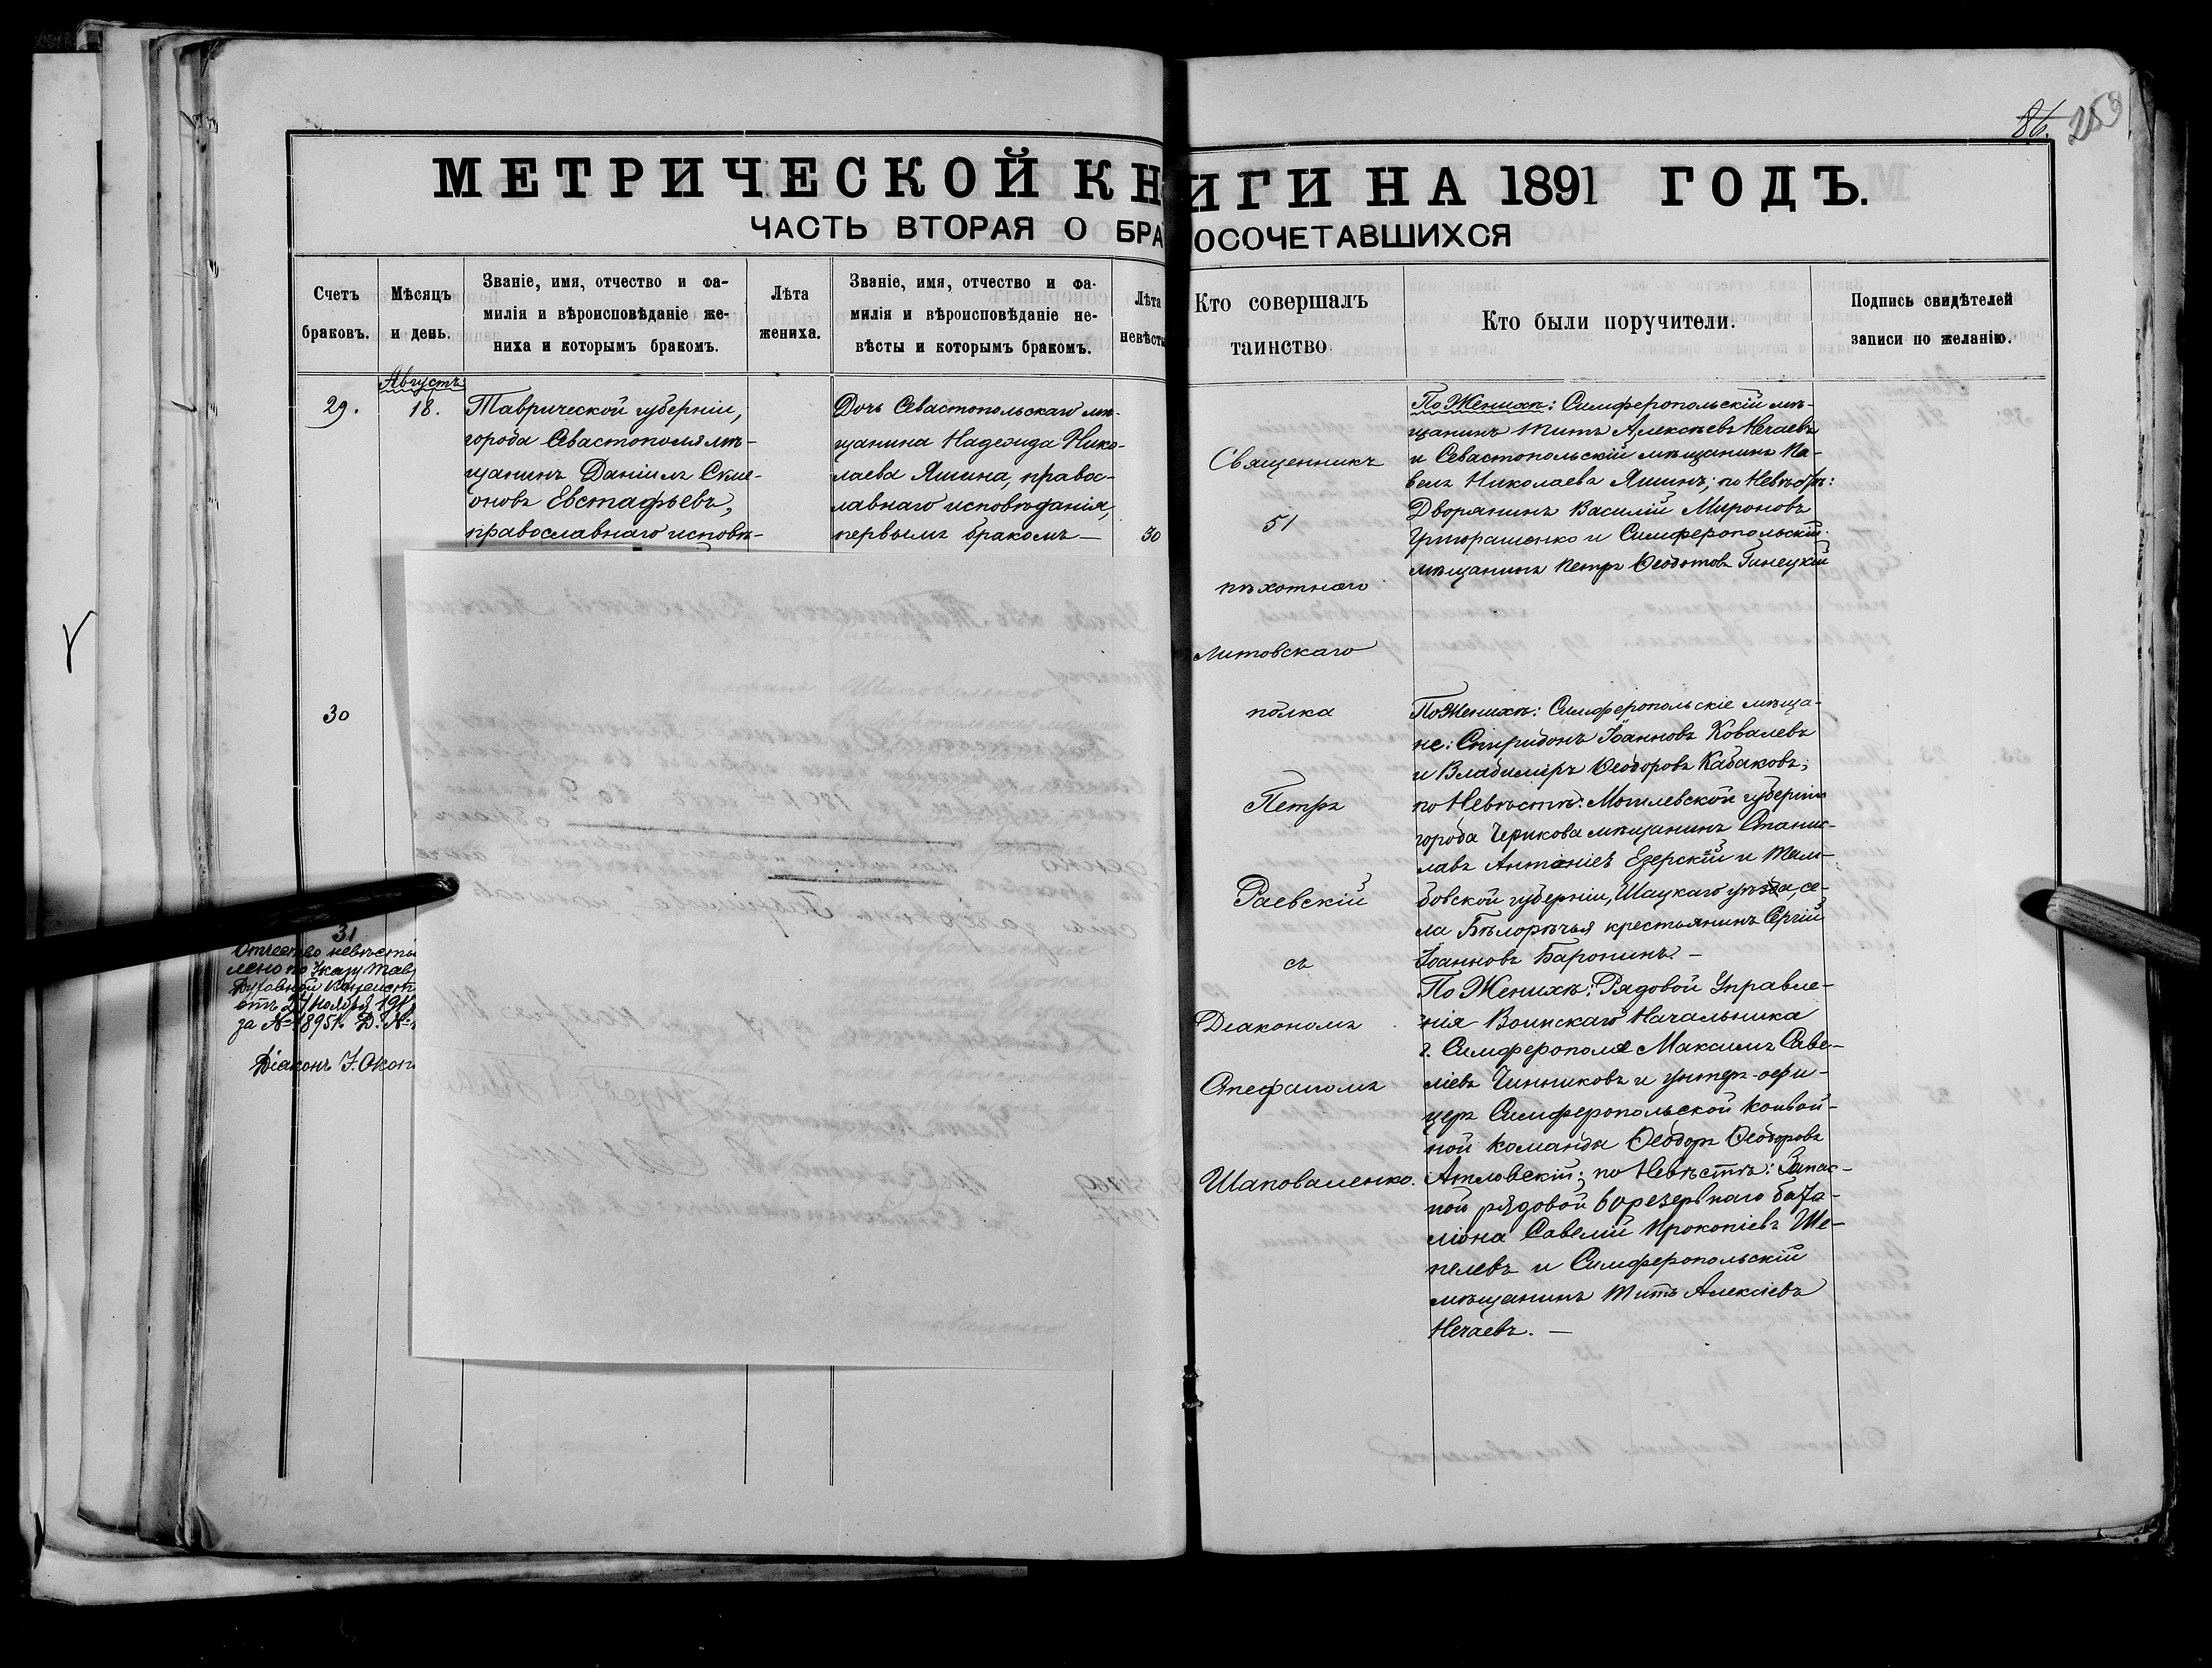 86. 253
МЕТРИЧЕСКОЙ КНИГИ НА 1891 ГОДЪ.
ЧАСТЬ ВТОРАЯ О БРАКОСОЧЕТАВШИХСЯ
Счетъ браковъ.
Мѣсяцъ и день.
Званіе, имя, отчество и фа-
милія и вѣроисповѣданіе же-
ниха и которымъ бракомъ.
Лѣта
жениха.
Званіе, имя, отчество и фа-
милія и вѣроисповѣданіе не-
вѣсты и которымъ бракомъ.
Лѣта
невѣсты
Кто совершалъ
таинство
Кто были поручители.
Подпись свидѣтелей
записи по желанію.
29.
Августъ
18.
Таврической губерніи,
города Севастополя мѣ-
щанинъ Даніилъ Симе-
оновъ Евстафьевъ,
православнаго исповѣ-
Дочь Севастопольскаго мѣ-
щанина Надежда Нико-
лаева Яшина, правос-
лавнаго исповѣданія,
первымъ бракомъ —
30
30
31
Отчество невѣсты
лено по Указу Тав
Духовной Консист
отъ 27 Ноября 191
за № 18951. Д. №
Діаконъ І. Окон
Священникъ
51
пѣхотнаго
Литовскаго
полка
Петръ
Раевскій
съ
Діакономъ
Стефаномъ
Шаповаленко.
По Женихѣ: Симферопольскій мѣ-
щанинъ Титъ Алексѣевъ Нечаевъ
и Севастопольскій мѣщанинъ Па-
велъ Николаевъ Яшинъ; по Невѣстѣ:
Дворянинъ Василій Мироновъ
Григорашенко и Симферопольскій
мѣщанинъ Петръ Ѳеодотовъ Гинецкій
По Женихѣ: Симферопольскіе мѣща-
не: Спиридонъ Іоанновъ Ковалевъ
и Владиміръ Ѳеодоровъ Кабаковъ;
по Невѣстѣ: Могилевской губерніи
города Черикова мѣщанинъ Станис-
лавъ Антоніевъ Езерскій и Там-
бовской губерніи, Шацкаго уѣзда, се-
ла Бѣлорѣчья крестьянинъ Сергій
Іоанновъ Баронинъ. —
По Женихѣ: Рядовой Управле-
нія Воинскаго Начальника
г. Симферополя Максимъ Саве-
ліевъ Чинниковъ и унтеръ-офи-
церъ Симферопольской конвой-
ной команды Ѳеодоръ Ѳеодоровъ
Атловскій; по Невѣстѣ: Запас-
ной рядовой 60 резервнаго бата-
ліона Савелій Прокопіевъ Ше-
пелевъ и Симферопольскій
мѣщанинъ Титъ Алексіевъ
Нечаевъ. —